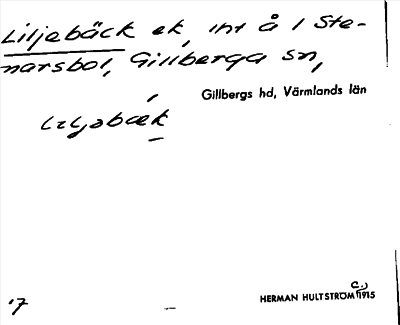 Liljebäck ek, int å 1 Ste-
narsbol, Gillberga sn,
Gillbergs hd, Värmlands län
lɪljəbæk
'7
C.,
HERMAN HULTSTRÖM 1915